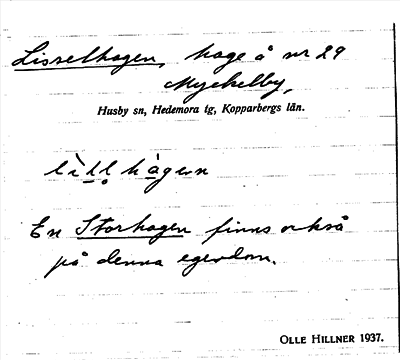 Lisselhagen, hage å nr 29
Myckelby,
Husby sn, Hedemora tg, Kopparbergs län.
lìḷḷhàgen
En Storhagen finns också
på denna egendom.
OLLE HILLNER 1937.